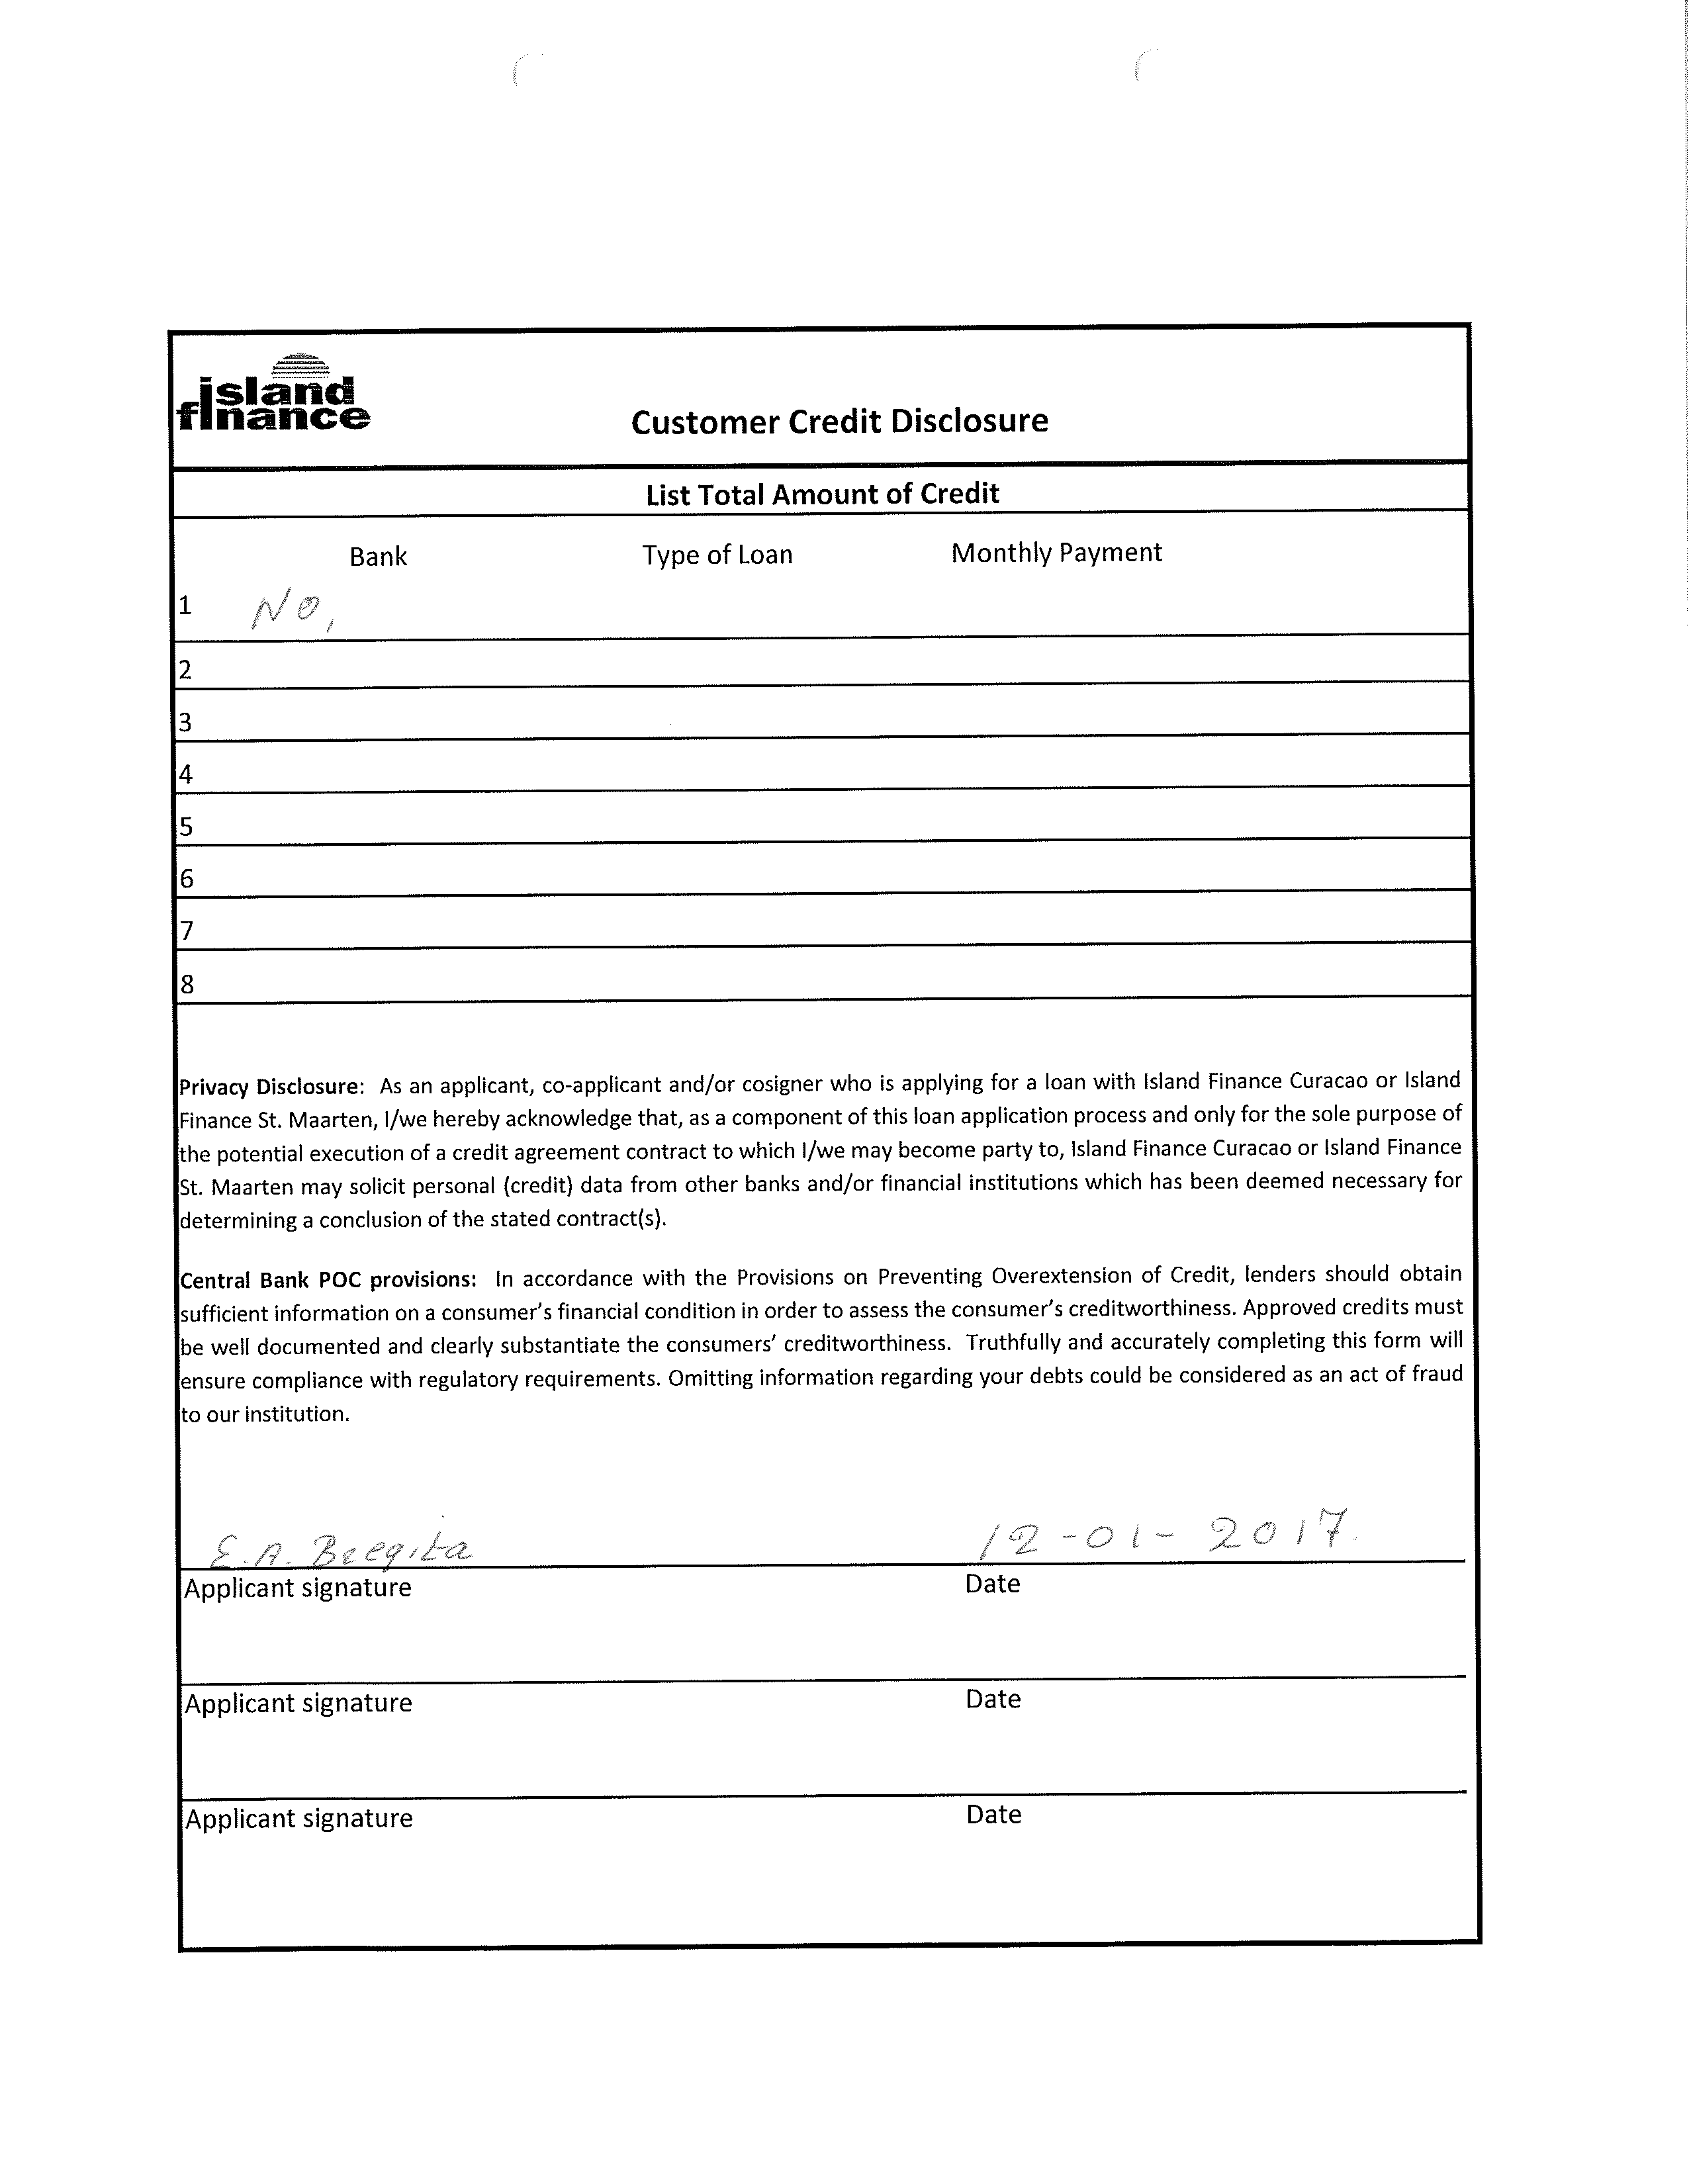 island
finance
Customer Credit Disclosure
List Total Amount of Credit
Bank Type of Loan Monthly Payment
1 No,
2
3
4
5
6
7
8
Privacy Disclosure: As an applicant, co-applicant and/or cosigner who is applying for a loan with Island Finance Curacao or Island
Finance St. Maarten, I/we hereby acknowledge that, as a component of this loan application process and only for the sole purpose of
the potential execution of a credit agreement contract to which I/we may become party to, Island Finance Curacao or Island Finance
St. Maarten may solicit personal (credit) data from other banks and/or financial institutions which has been deemed necessary for
determining a conclusion of the stated contract(s).
Central Bank POC provisions: In accordance with the Provisions on Preventing Overextension of Credit, lenders should obtain
sufficient information on a consumer's financial condition in order to assess the consumer's creditworthiness. Approved credits must
be well documented and clearly substantiate the consumers' creditworthiness. Truthfully and accurately completing this form will
ensure compliance with regulatory requirements. Omitting information regarding your debts could be considered as an act of fraud
to our institution.
E.A. Bregita 12-01-2017.
Applicant signature Date
Applicant signature Date
Applicant signature Date